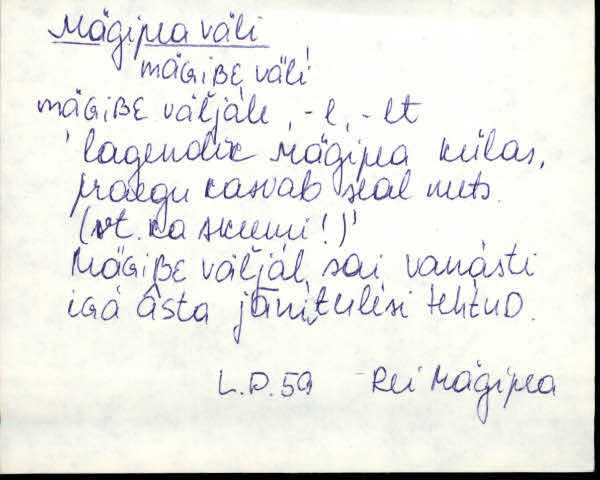 Mägipea väli
mäGiBE väĺi
mäGiBE väĺjäle, -l, -lt
'lagendik Mägipea külas,
praegu kasvab seal mets.
(vt. ka skeemi!)'
MäGiBE väĺjäl sai vanásti
iGá âsta jāńitulesi tehtuD.
L.D. 59 Rei Mägipea